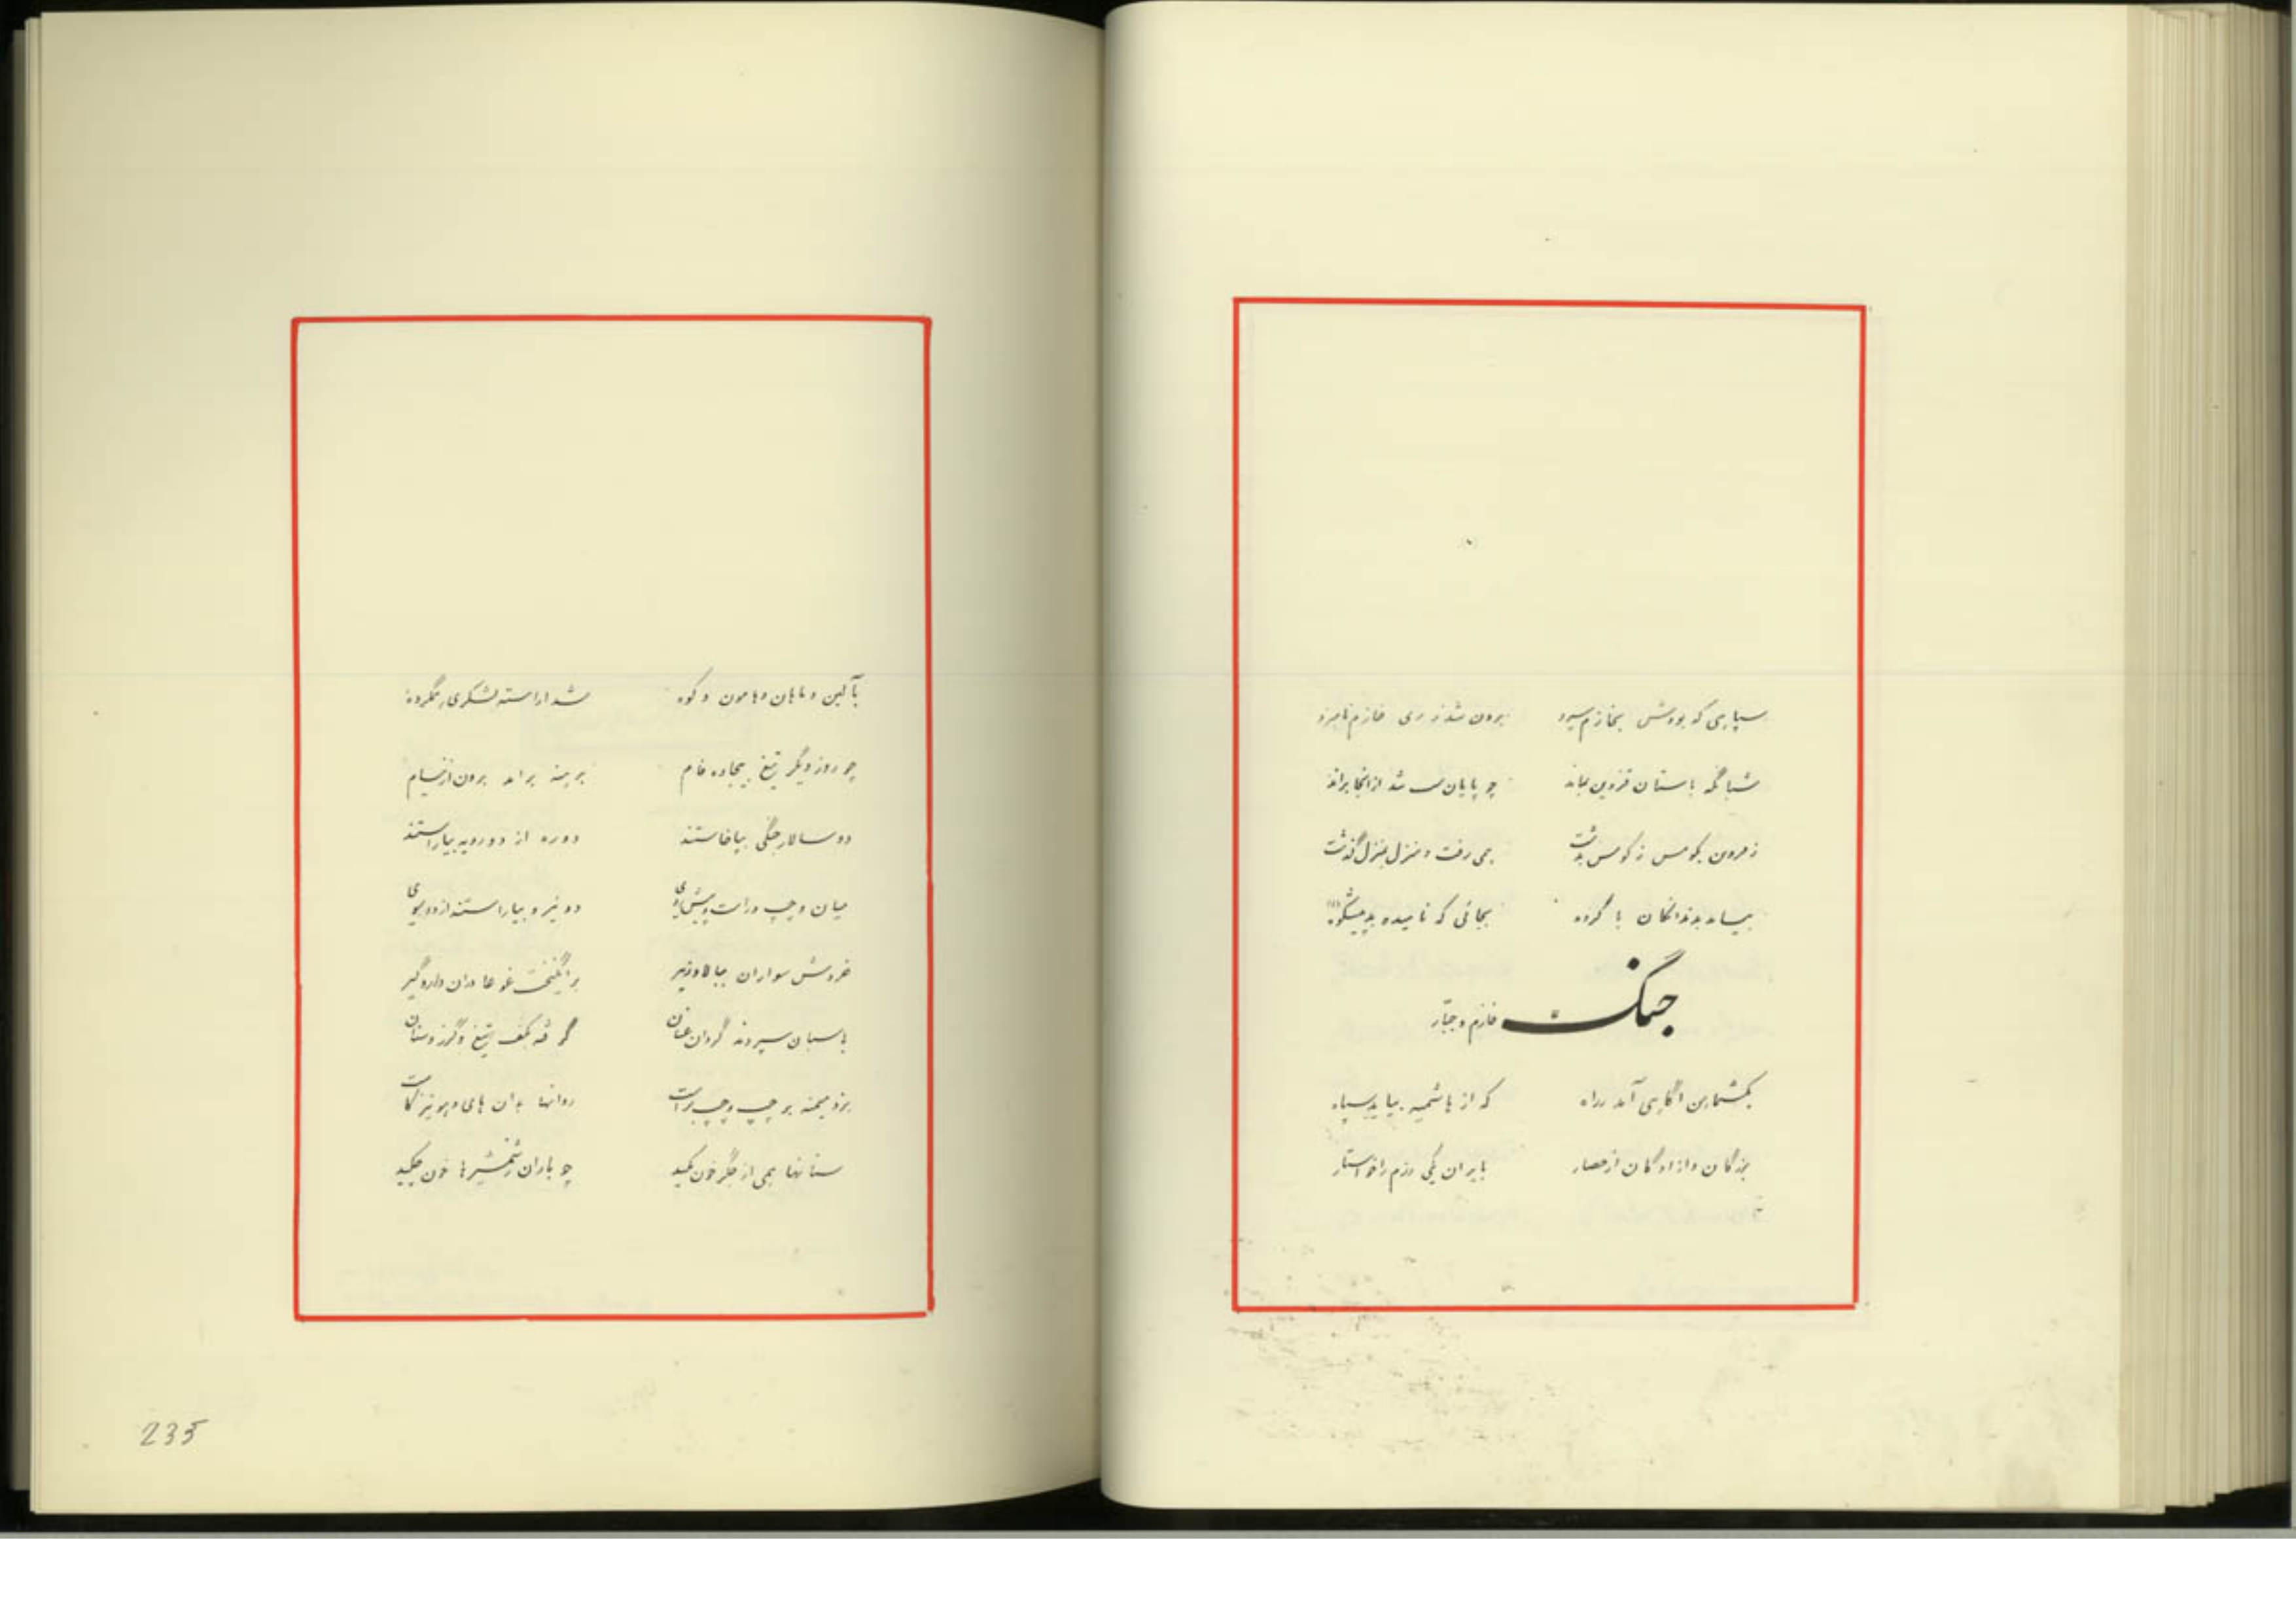 سپاهی که بودش بخازم سپرد    برون شد ز ری خازم نامبرد
شبانگه باستان قزوین بماند    چو پایان شب شد از آنجا براند
بکومس ز کومس بدشت    همی رفت و منزل بمنزل گذشت
بیامد با گروه    بجائی که نامیده بد
جنگ خازم و جبّار
آگاهی آمد ز راه    که از هاشمیه بیاید سپاه
بزرگان و آزادگان از حصار    بایران یکی رزم را خواستار
و هامون و کوه    شد آراسته لشکری همگروه
چو روز دیگر تیغ بیجاده فام    برهنه برآمد برون از نیام
دو سالار جنگی بپا خاستند    دو رده از دو رویه بیاراستند
میان و چپ و راست و پیش روی    دو نیرو بیاراستند از دو سوی
خروش سواران ببالا و زیر    برانگیخت غوغا در آن دار و گیر
باسبان سپردند گردان عنان    گرفته بکف تیغ و گرز و سنان
بزد میمنه بر چپ و چپ براست    روانها بدان های و هو نیز کاست
سنانها همی از جگر خون مکید    چو باران ز شمشیرها خون چکید
235